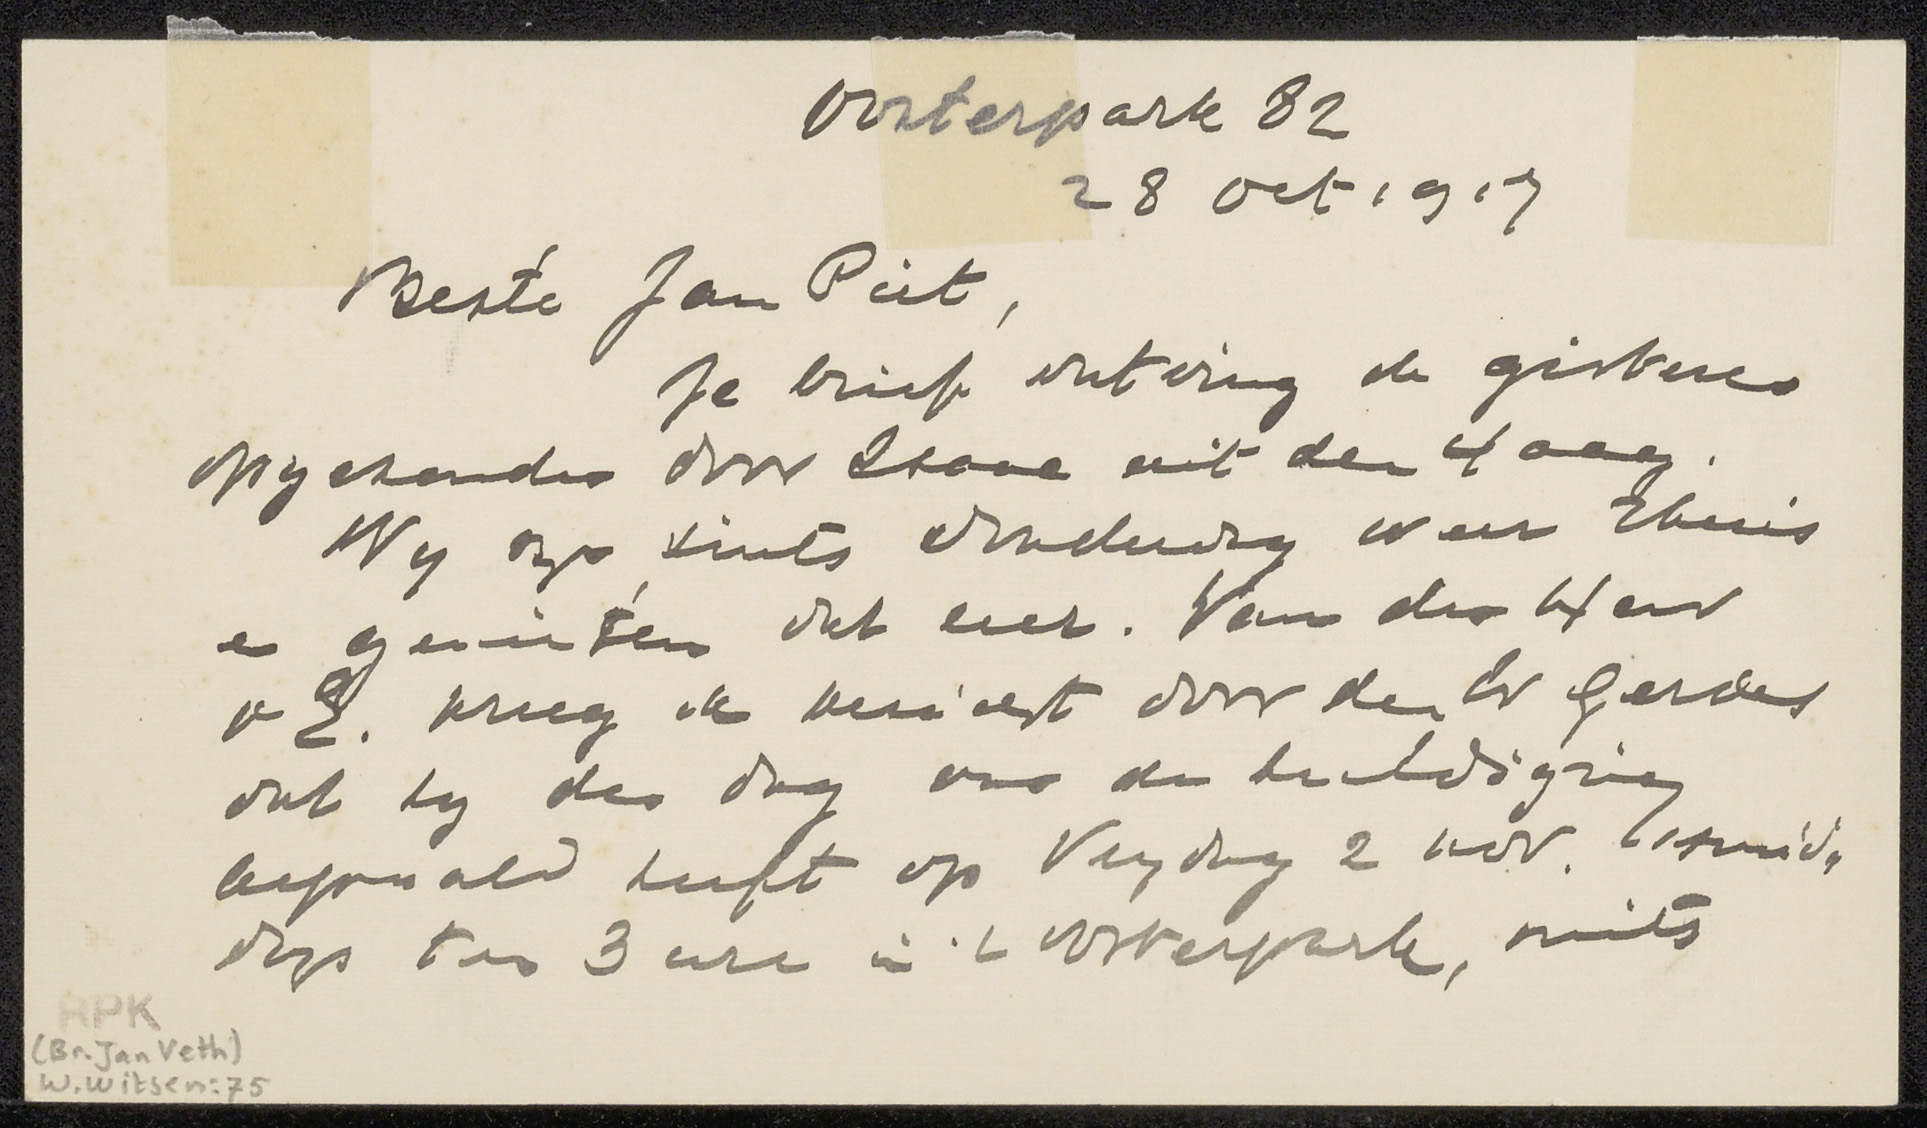 Oosterpark 82
28 Oct. 1917
Beste Jan Piet,
Je brief ontving ik gisteren
opgezonden door Isaac uit den Haag.
Wy zyn sints donderdag weer thuis
en genieten dat zeer. Van den Heer
v E. kreeg ik bericht door den Hr Gerdes
dat hy den dag van de huldiging
bepaald heeft op Vrydag 2 nov. 's mid.
dags ten 3 ure in 't Oosterpark, mits
RPK
(Br. Jan Veth)
W. Witsen: 75